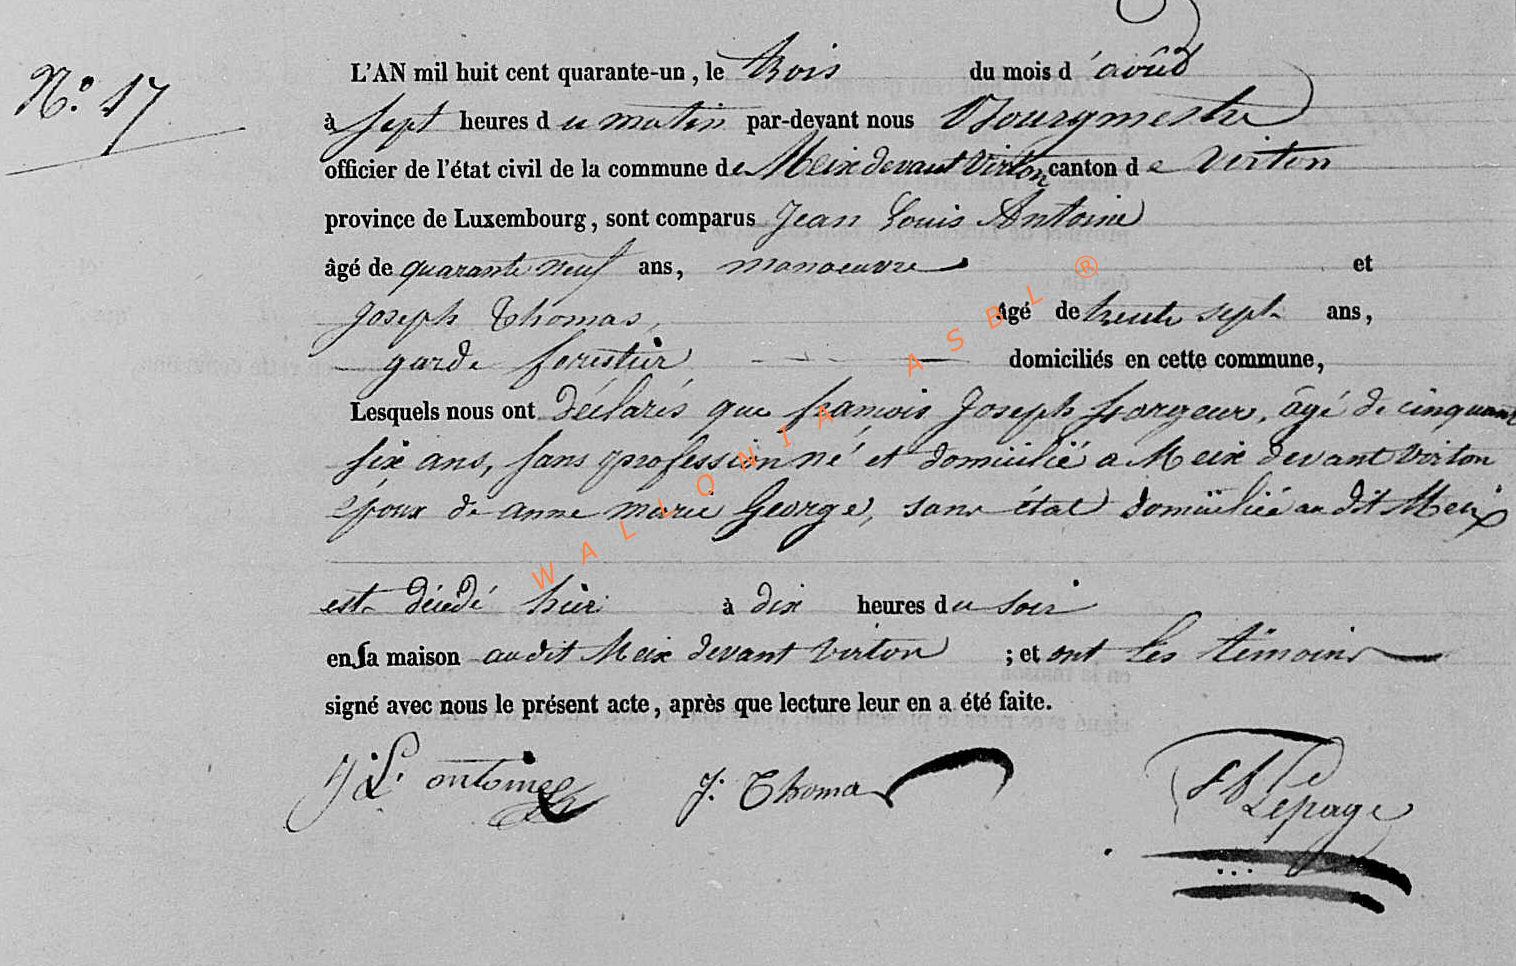 N.° 17
L'AN mil huit cent quarante-un, le trois du mois d'août
à sept heures du matin par-devant nous Bourgmestre
officier de l'état civil de la commune de Meix devant Virton canton de Virton
province de Luxembourg, sont comparus Jean Louis Antoine
âgé de quarante neuf ans, manoeuvre et
Joseph Thomas, âgé de trente sept ans,
garde forestier domiciliés en cette commune,
Lesquels nous ont déclarés que françois Joseph Gorgeur, âgé de cinquante
six ans, sans profession né et domicilié a Meix devant Virton
époux de anne marie George, sans état domicilié au dit Meix
est décédé hier à dix heures du soir
en sa maison au dit Meix devant Virton ; et ont les témoins
signé avec nous le présent acte, après que lecture leur en a été faite.
J L. antoine J. Thomas Lepage
WALLONIA ASBL ®